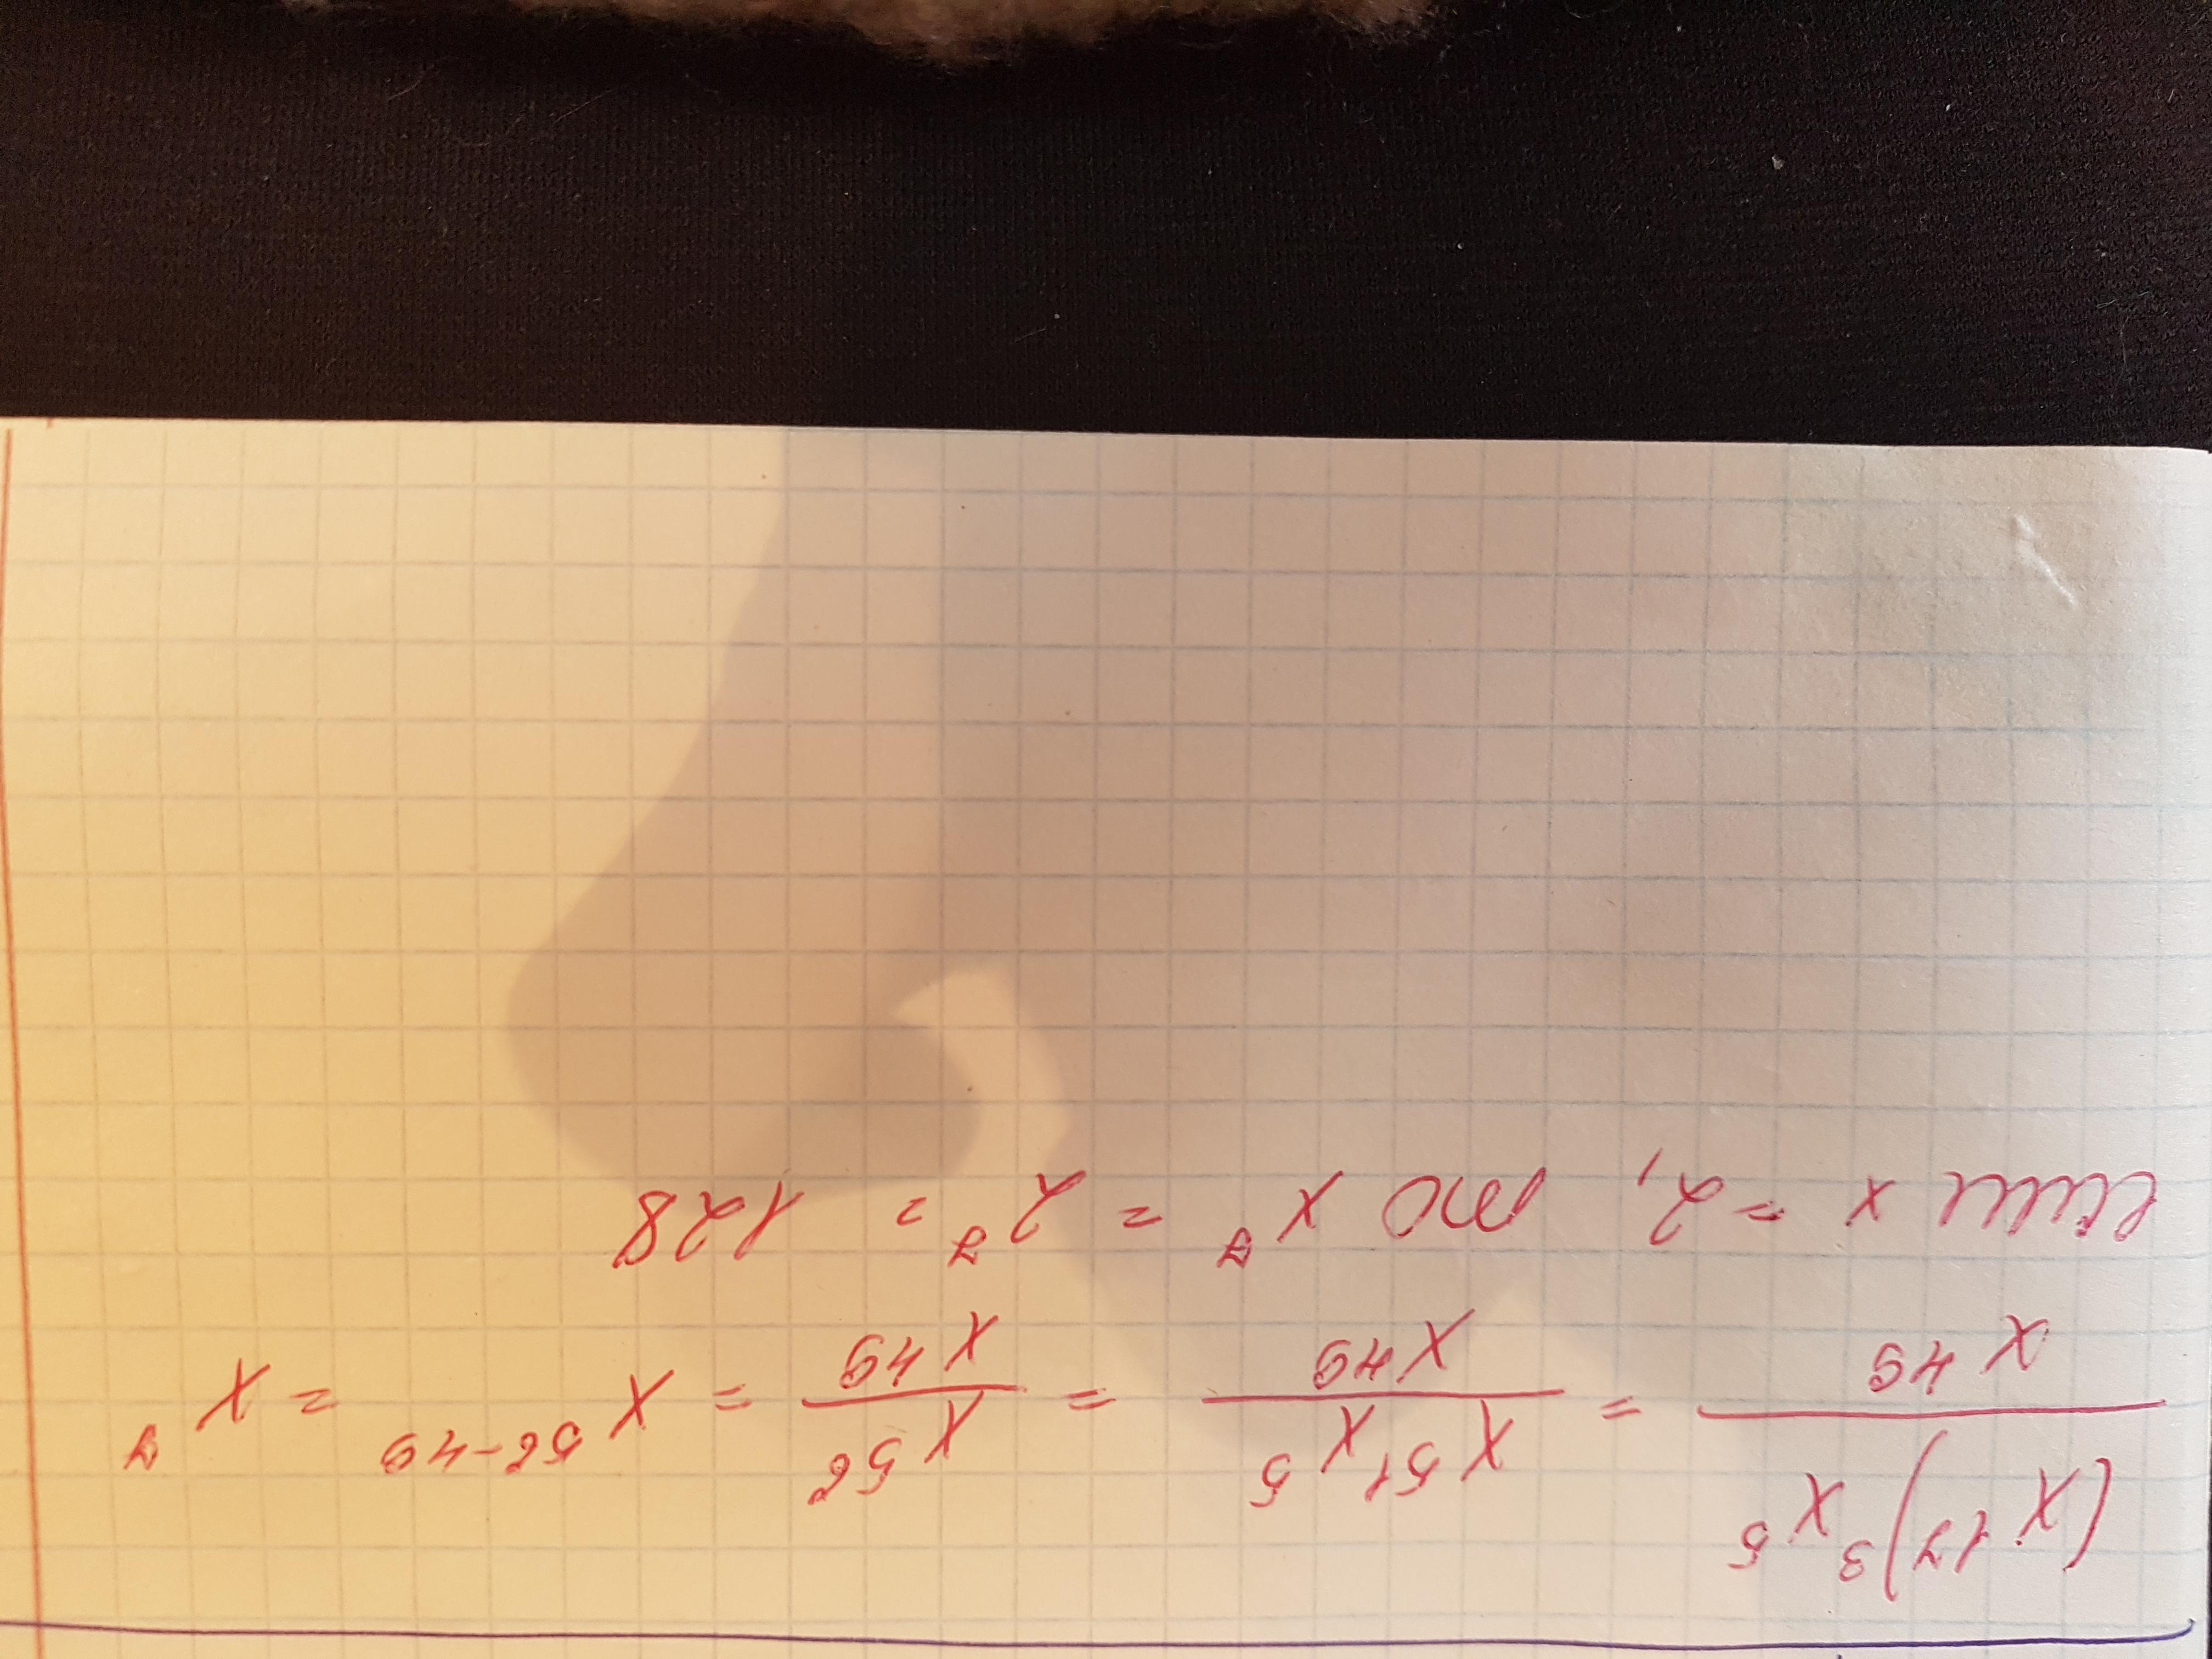 (x¹⁷)³x⁵/x⁴⁹ = x⁵¹x⁵/x⁴⁹ = x⁵⁶/x⁴⁹ = x⁵⁶⁻⁴⁹ = x⁷
если x = 2, то x⁷ = 2⁷ = 128